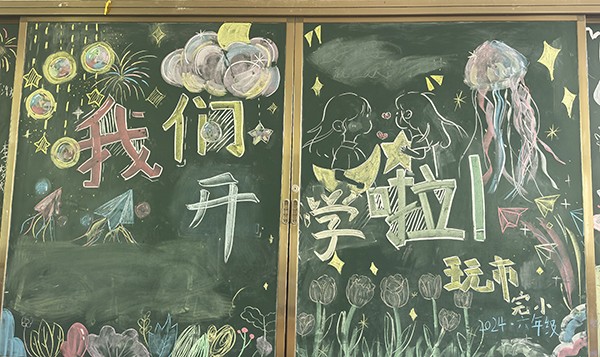 我们
开学啦!
玩市
完小
2024.六年级